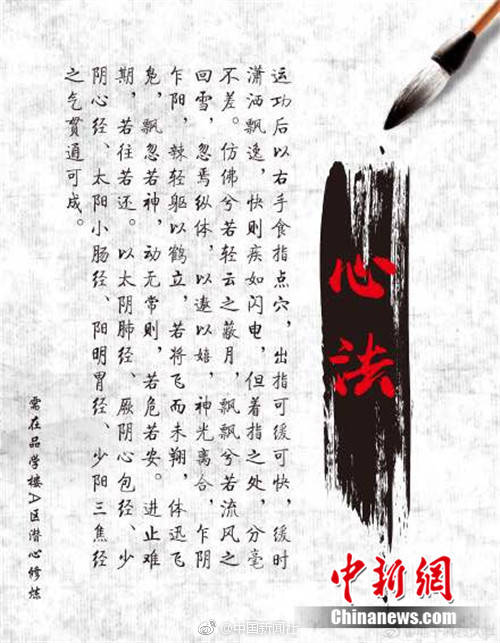 心法
运功后以右手食指点穴，出指可缓可快，缓时
潇洒飘逸，快则疾如闪电，但着指之处，分毫
不差。仿佛兮若轻云之蔽月，飘飘兮若流风之
回雪，忽焉纵体，以遨以嬉，神光离合，乍阴
乍阳，辣轻躯以鹤立，若将飞而未翔，体迅飞
凫，飘忽若神，动无常则，若危若安。进止难
期，若往若还。以太阴肺经、厥阴心包经、少
阴心经、太阳小肠经、阳明胃经、少阳三焦经
之气贯通可成。
需在品学楼A区潜心修炼
中新網
Chinanews.com
@中国新闻社